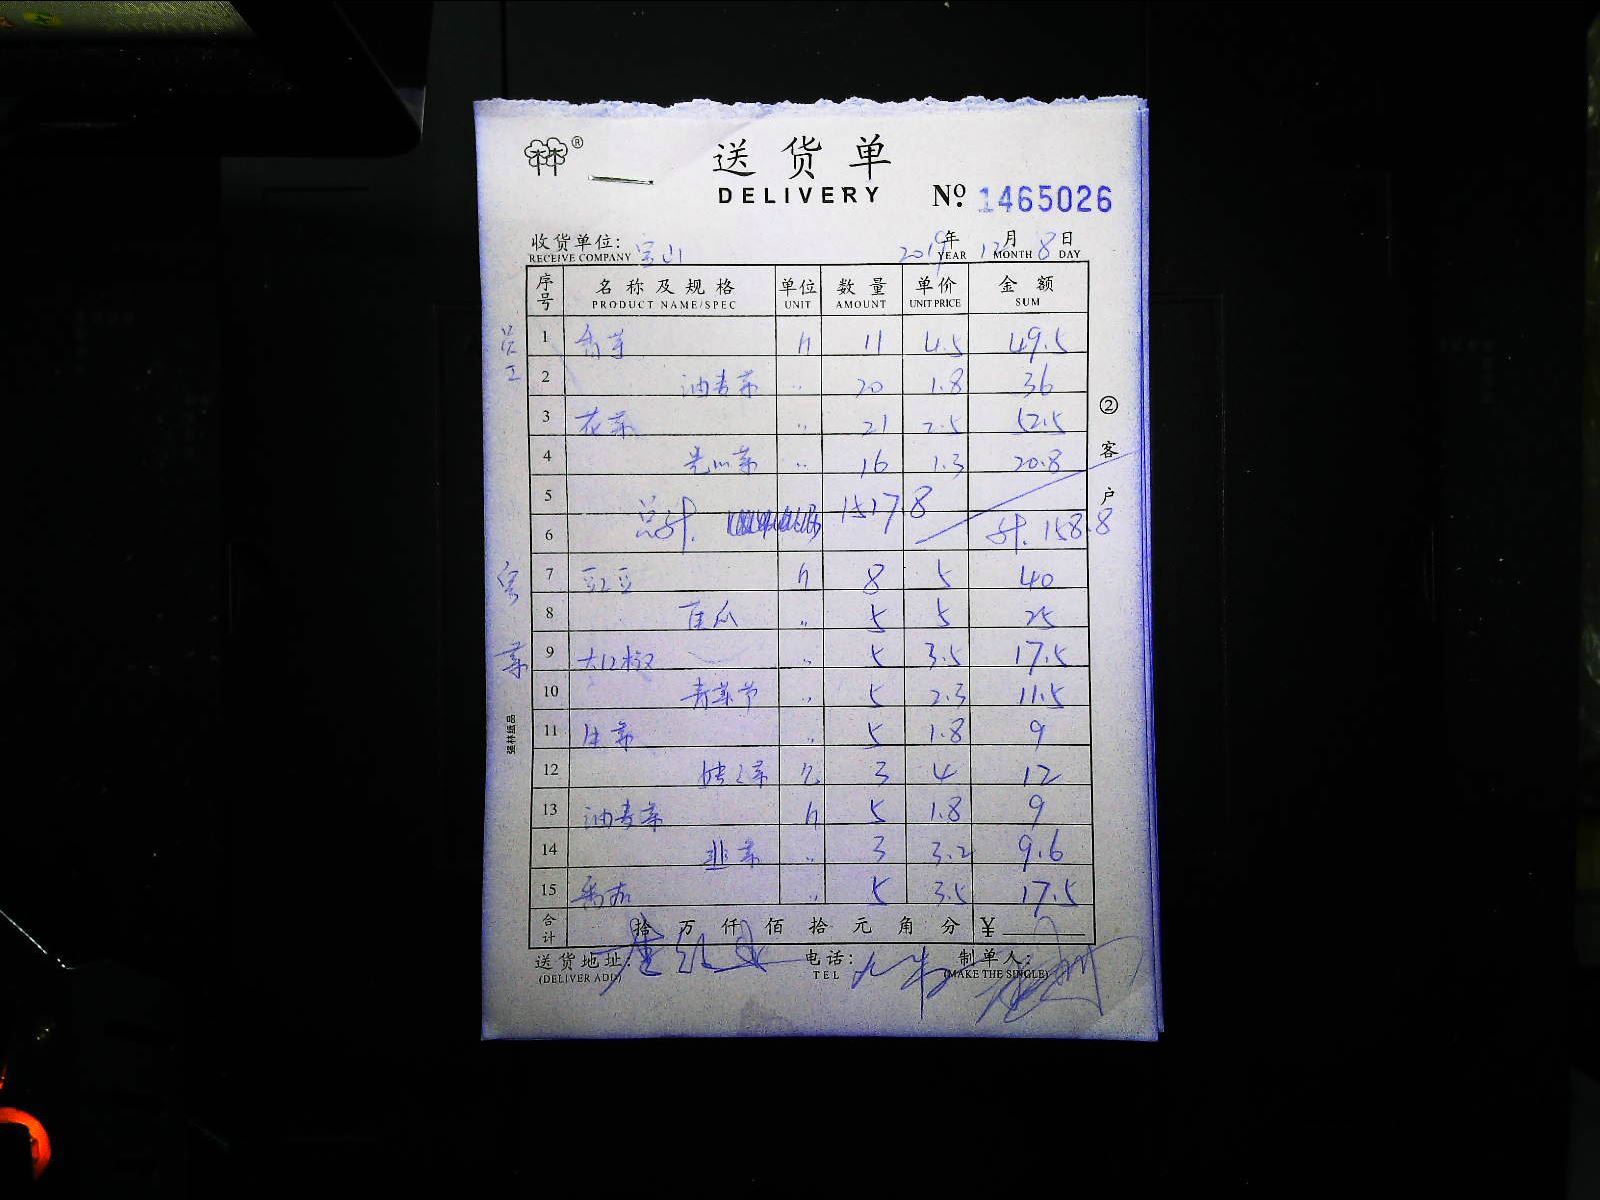 送货单
DELIVERY
№ 1465026
收货单位: 宝山 2019年 12月 8日
RECEIVE COMPANY YEAR MONTH DAY
序号 名称及规格 单位 数量 单价 金额
PRODUCT NAME/SPEC UNIT AMOUNT UNIT PRICE SUM
员工
1 香芋 斤 11 4.5 49.5
2 油麦菜 〃 20 1.8 36
3 花菜 〃 21 2.5 52.5
4 〃 16 1.3 20.8
5 总计 15178
6 计 158.8
客菜
7 豇豆 斤 8 5 40
8 黄瓜 〃 5 5 25
9 大红椒 〃 5 3.5 17.5
10 〃 5 2.3 11.5
11 生菜 〃 5 1.8 9
12 3 4 12
13 油麦菜 斤 5 1.8 9
14 韭菜 〃 3 3.2 9.6
15 番茄 〃 5 3.5 17.5
合计 拾 万 仟 佰 拾 元 角 分 ¥
送货地址: 电话: 制单人:
(DELIVER ADD) TEL (MAKE THE SINGLE)
②客户
强林纸品